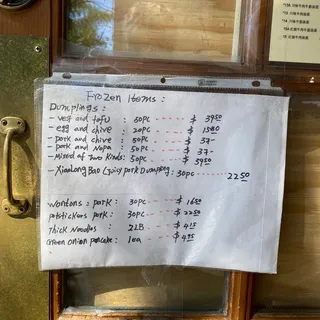 Frozen Items :
Dumplings :
- veg and tofu : 50pc ---- $ 39.50
- egg and chive : 20pc ---- $ 15.80
- pork and chive : 50pc ---- $ 37-
- pork and Napa : 50pc ---- $ 37-
- Mixed of Two Kinds : 50pc ---- $ 39.50
- XiaoLong Bao (Juicy pork Dumpling) : 30pc ---- 22.50
Wontons : pork : 30pc ---- $ 16.50
potstickers pork : 30pc ---- $ 22.50
Thick Noodles : 2LB ---- $ 4.15
Green Onion pancake : 1ea ---- $ 4.95